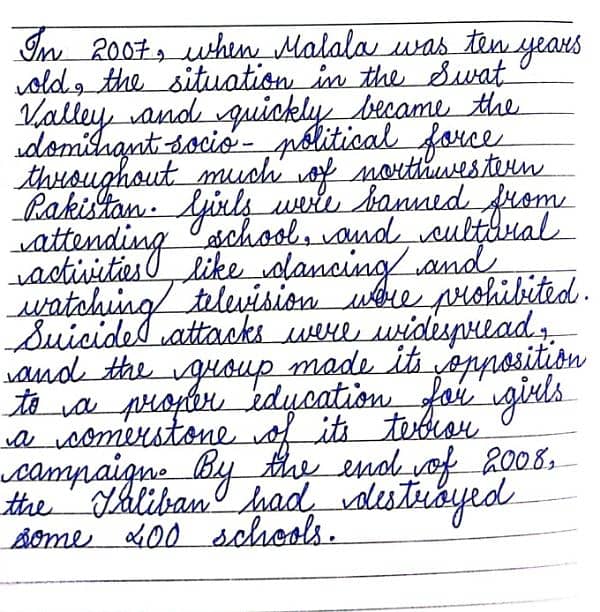 In 2007, when Malala was ten years
old, the situation in the Swat
Valley and quickly became the
dominant socio- political force
throughout much of northwestern
Pakistan. Girls were banned from
attending school, and cultural
activities like dancing and
watching television were prohibited.
Suicide attacks were widespread,
and the group made its opposition
to a proper education for girls
a cornerstone of its terror
campaign. By the end of 2008,
the Taliban had destroyed
some 400 schools.